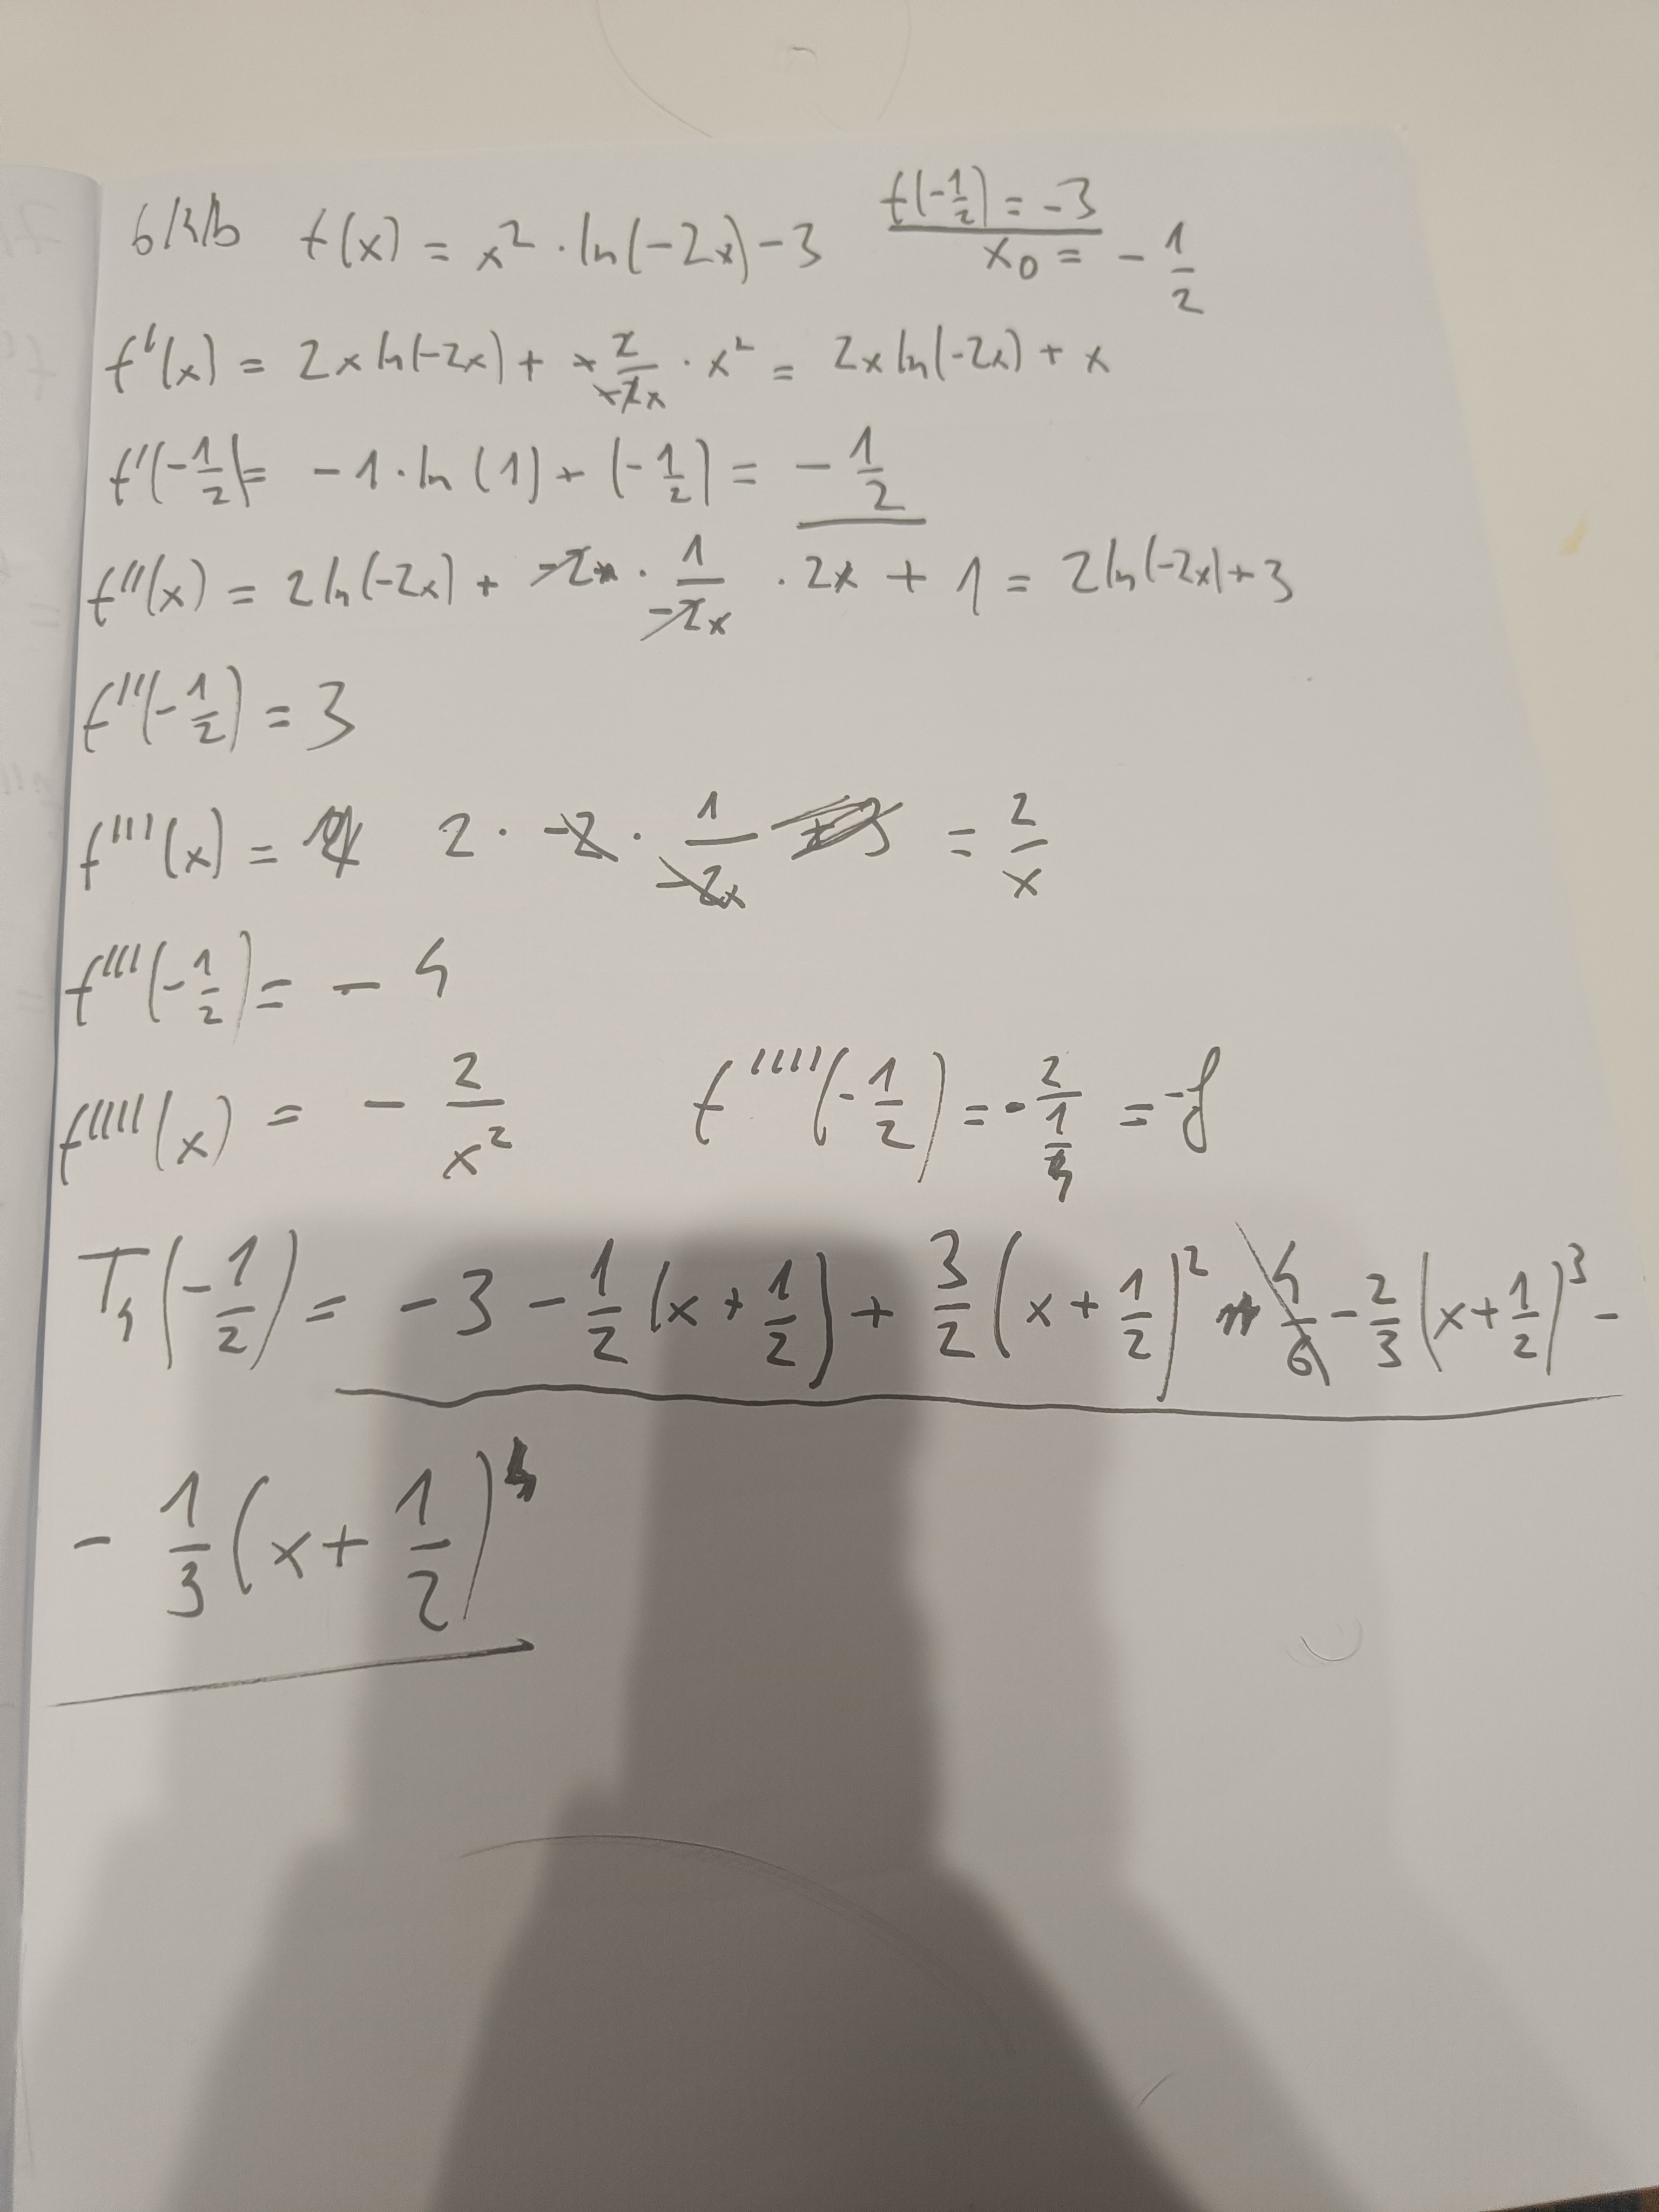 6/3/b f(x) = x² · ln(-2x) - 3 f(-1/2) = -3
x₀ = -1/2
f'(x) = 2x ln(-2x) + 2/-2x · x² = 2x ln(-2x) + x
f'(-1/2) = -1 · ln(1) + (-1/2) = -1/2
f''(x) = 2 ln(-2x) + -2 · 1/-2x · 2x + 1 = 2 ln(-2x) + 3
f''(-1/2) = 3
f'''(x) = 2 · -2 · 1/-2x = 2/x
f'''(-1/2) = -4
f''''(x) = -2/x² f''''(-1/2) = -2/(1/4) = -8
T₄(-1/2) = -3 - 1/2 (x + 1/2) + 3/2 (x + 1/2)² - 2/3 (x + 1/2)³ -
- 1/3 (x + 1/2)⁴